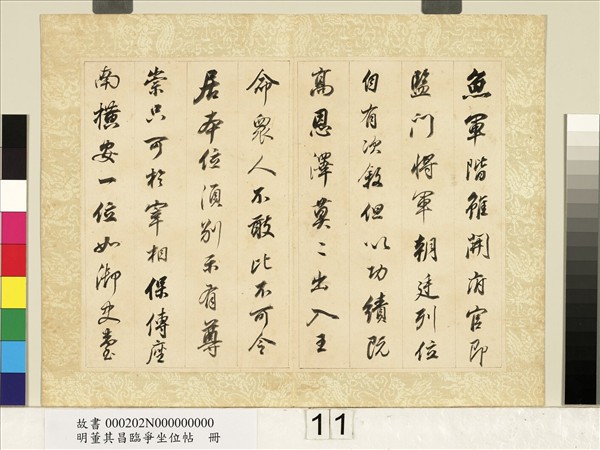 魚軍階雖開府官即
監門將軍朝廷列位
自有次敘但以功績既
高恩澤莫二出入王
命眾人不敢比不可令
居本位須別示有尊
崇只可於宰相保傅座
南橫安一位如御史臺
故書 000202N000000000
明董其昌臨爭坐位帖 冊
11